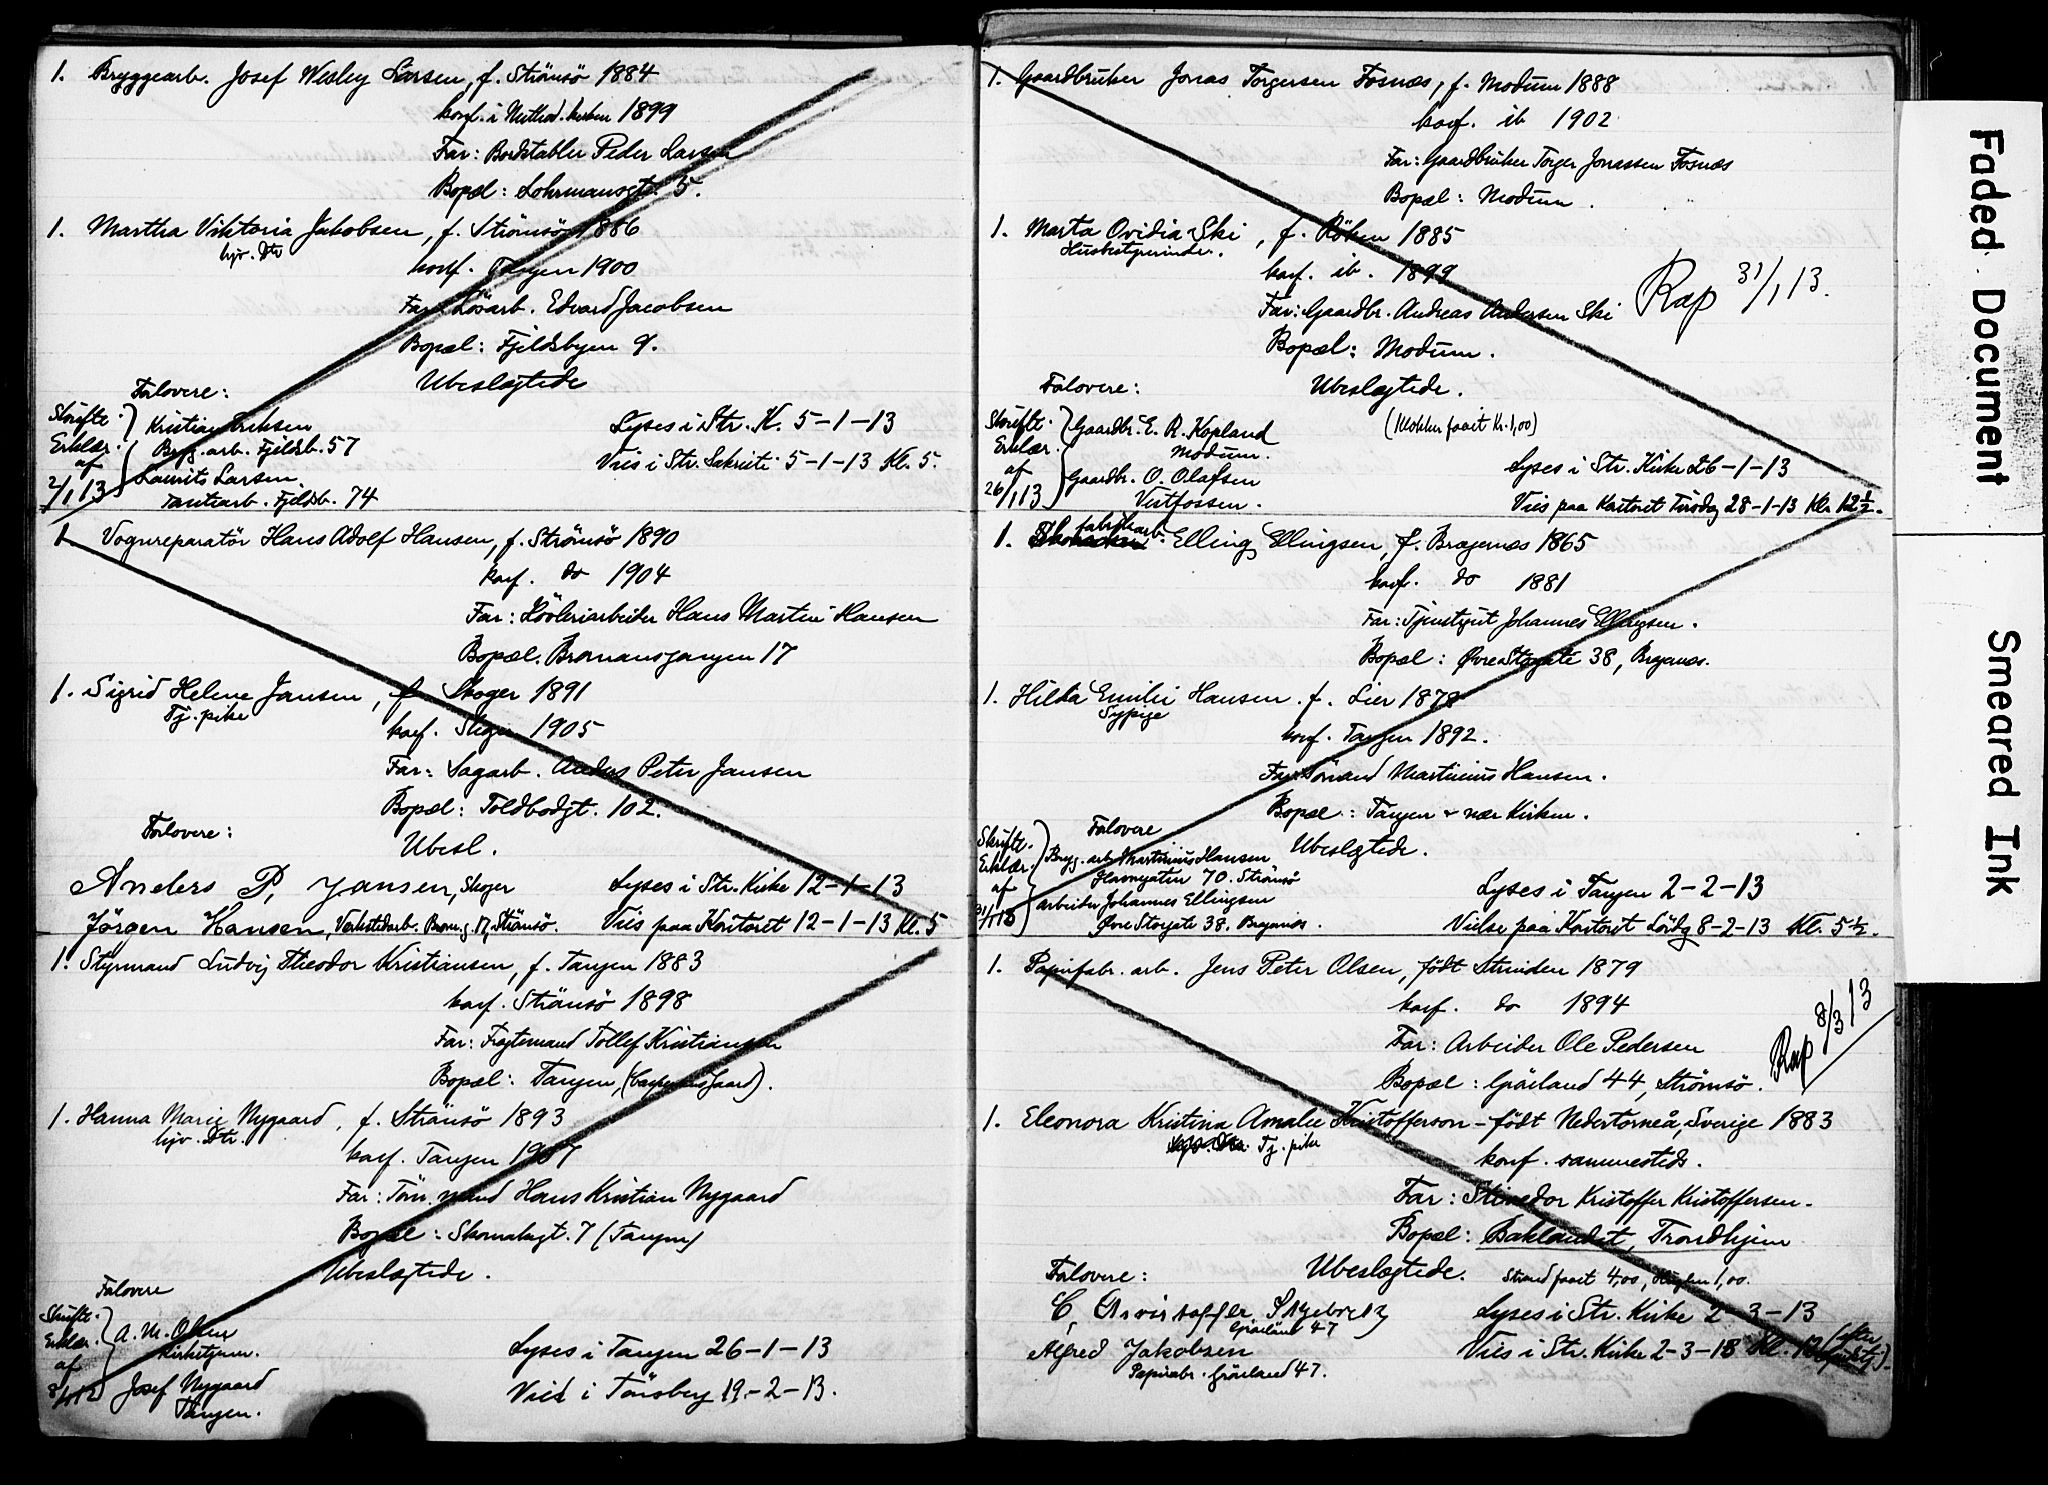 1. Bryggearb. Josef Wesley Larsen, f. Strömsö 1884
konf. i Method. kirken 1899
Far: Bordstabler Peder Larsen
Bopæl: Lohrmansgt. 5.
1. Martha Viktoria Jakobsen, f. Strömsö 1886
hjv. Dtr
konf. Tangen 1900
Far: Lösarb. Edvard Jacobsen
Bopæl: Fjeldsbyen 9.
Ubeslægtede
Forlovere:
Skriftl. Erklær. af 2/1 13
Kristian Eriksen
Brygg. arb. Fjeldsb. 57
Laurits Larsen
Fjeldsb. 74
Lyses i Str. K. 5-1-13
Vies i Str. Sakristi 5-1-13 Kl. 5.
1. Vognreparatör Hans Adolf Hansen, f. Strömsö 1890
konf. do 1904
Far: Hövleriarbeider Hans Martin Hansen
Bopæl. Bromansgangen 17
1. Sigrid Helene Jansen, f. Skoger 1891
Tj. pike
konf. Skoger 1905
Far: Sagarb. Anders Peter Jansen
Bopæl: Toldbodgt. 102.
Ubesl.
Forlovere:
Anders P, Jansen, Skoger
Jörgen Hansen, Verkstedarb. Brom.g 17, Strömsö.
Lyses i Str. Kirke 12-1-13
Vies paa Kontoret 12-1-13 Kl. 5
1. Styrmand Ludvig Theodor Kristiansen, f. Tangen 1883
konf. Strömsö 1898
Far: Fragtemand Tollef Kristiansen
Bopæl: Tangen,
1. Hanna Marie Nygaard, f. Strömsö 1893
hjv. Dtr
konf. Tangen 1907
Far: Töm.mand Hans Kristian Nygaard
Bopæl: Skomakergt. 7 (Tangen)
Ubeslægtede.
Forlovere
Skriftl. Erklær. af
A. M. Olsen
Kirketjener.
Josef Nygaard
Tangen.
Lyses i Tangen 26-1-13
Viet i Tönsberg 19-2-13.
1. Gaardbruker Jonas Torgersen Fosnæs, f. Modum 1888
konf. ib 1902
Far: Gaardbruker Torger Jonassen Fosnæs
Bopæl: Modum.
1. Marta Ovidia Ski, f. Röken 1885
Husbestyrerinde.
konf. ib. 1899
Far: Gaardbr. Andreas Andersen Ski
Bopæl: Modum.
Rap 31/1 13.
Ubeslægtede.
Forlovere:
Skriftl. Erklær. af 26/1 13
Gaardbr. E. R. Kopland
Modum.
Gaardbr. O. Olafsen
Vestfossen.
(Klokker faaet Kr. 1,00)
Lyses i Str. Kirke 26-1-13
Vies paa Kontoret Tirsdag 28-1-13 Kl. 12 1/2.
1. fabrikarb. Elling Ellingsen, f. Bragernæs 1865
konf. do 1881
Far: Tjenstgut Johannes Ellingsen.
Bopæl: Øvre Storgate 38, Bragernæs.
1. Hilda Emilie Hansen. f. Lier 1878
Sypige
konf. Tangen 1892.
Far: Tömand Martinius Hansen.
Bopæl: Tangen nær Kirken.
Ubeslægtede.
Forlovere
Skriftl. Erklær. af 31/1 13
Brygg. arb. Martinius Hansen
Havnegaten 70. Strömsö
arbeider Johannes Ellingsen
Øvre Storgate 38. Bragernæs.
Lyses i Tangen 2-2-13
Vielse paa Kontoret Lördg 8-2-13 Kl. 5 1/2.
1. Papirfabr. arb. Jens Peter Olsen, födt Strinden 1879
konf. do 1894
Far: Arbeider Ole Pedersen
Bopæl: Gröнland 44, Strømsö.
Rap 8/3 13
1. Eleonora Kristina Amalie Kristofferson - födt Nedertorneå, Sverige 1883
Tj. pike
konf. sammesteds.
Far: Kristoffer Kristoffersen.
Bopæl: Baklandet, Trondhjem
Ubeslægtede.
Forlovere:
Alfred Jakobsen
Papirabr. Grönland 47.
Grönland 47
Lyses i Str. Kirke 2-3-13
Vies i Str. Kirke 2-3-13 Kl. 12
Faded Document
Smeared Ink